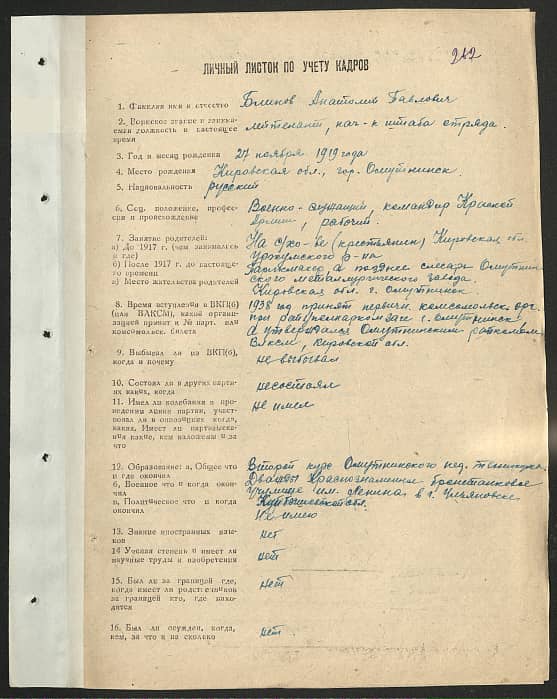 242
ЛИЧНЫЙ ЛИСТОК ПО УЧЕТУ КАДРОВ
1. Фамилия имя и отчество Блинов Анатолий Павлович
2. Воинское звание и занимаемая
должность в настоящее
время
лейтенант, нач-к штаба отряда.
3. Год и месяц рождения 27 ноября 1919 года
4. Место рождения Кировская обл., гор. Омутнинск
5. Национальность русский
6. Соц. положение, професия
и происхождение
Военно-служащий, командир Красной
Армии, рабочий.
7. Занятие родителей:
а) До 1917 г. (чем занимались
и где)
б) После 1917 г. до настоящего
времени
в) Место жительства родителей
На с/хо-ве (крестьянин) Кировская обл.
Уржумского р-на
а позднее слесарь Омутнинского
металлургического завода.
Кировская обл. г. Омутнинск.
8. Время вступления в ВКП(б)
(или ВЛКСМ), какой организацией
принят и № парт. или
комсомольск. билета
1938 год принят первичн. комсомольск. орг.
при г. Омутнинск
а утверждался Омутнинским райкомом
ВЛКСМ, Кировской обл.
9. Выбывал ли из ВКП(б),
когда и почему
не выбывал
10. Состоял ли в других партиях
каких, когда
несостоял
11. Имел ли колебания в проведении
линии партии, участвовал
ли в оппозициях когда,
каких, Имеет ли партвзыскания
какие, кем наложены и за
что
не имел
12. Образование: а, Общее что
и где окончил
б, Военное что и когда окончил
в, Политическое что и когда
окончил
Второй курс Омутнинского пед. техникума.
Дважды Краснознаменное бронетанковое
училище им. Ленина в г. Ульяновске
Куйбышевской обл.
Не имею
13. Знание иностранных языков
нет
14 Ученая степень и имеет ли
научные труды и изобретения
нет
15. Был ли за границей где,
когда имеет ли родственников
за границей кто, где находятся
нет
16. Был ли осужден, когда,
кем, за что и на сколько
нет.